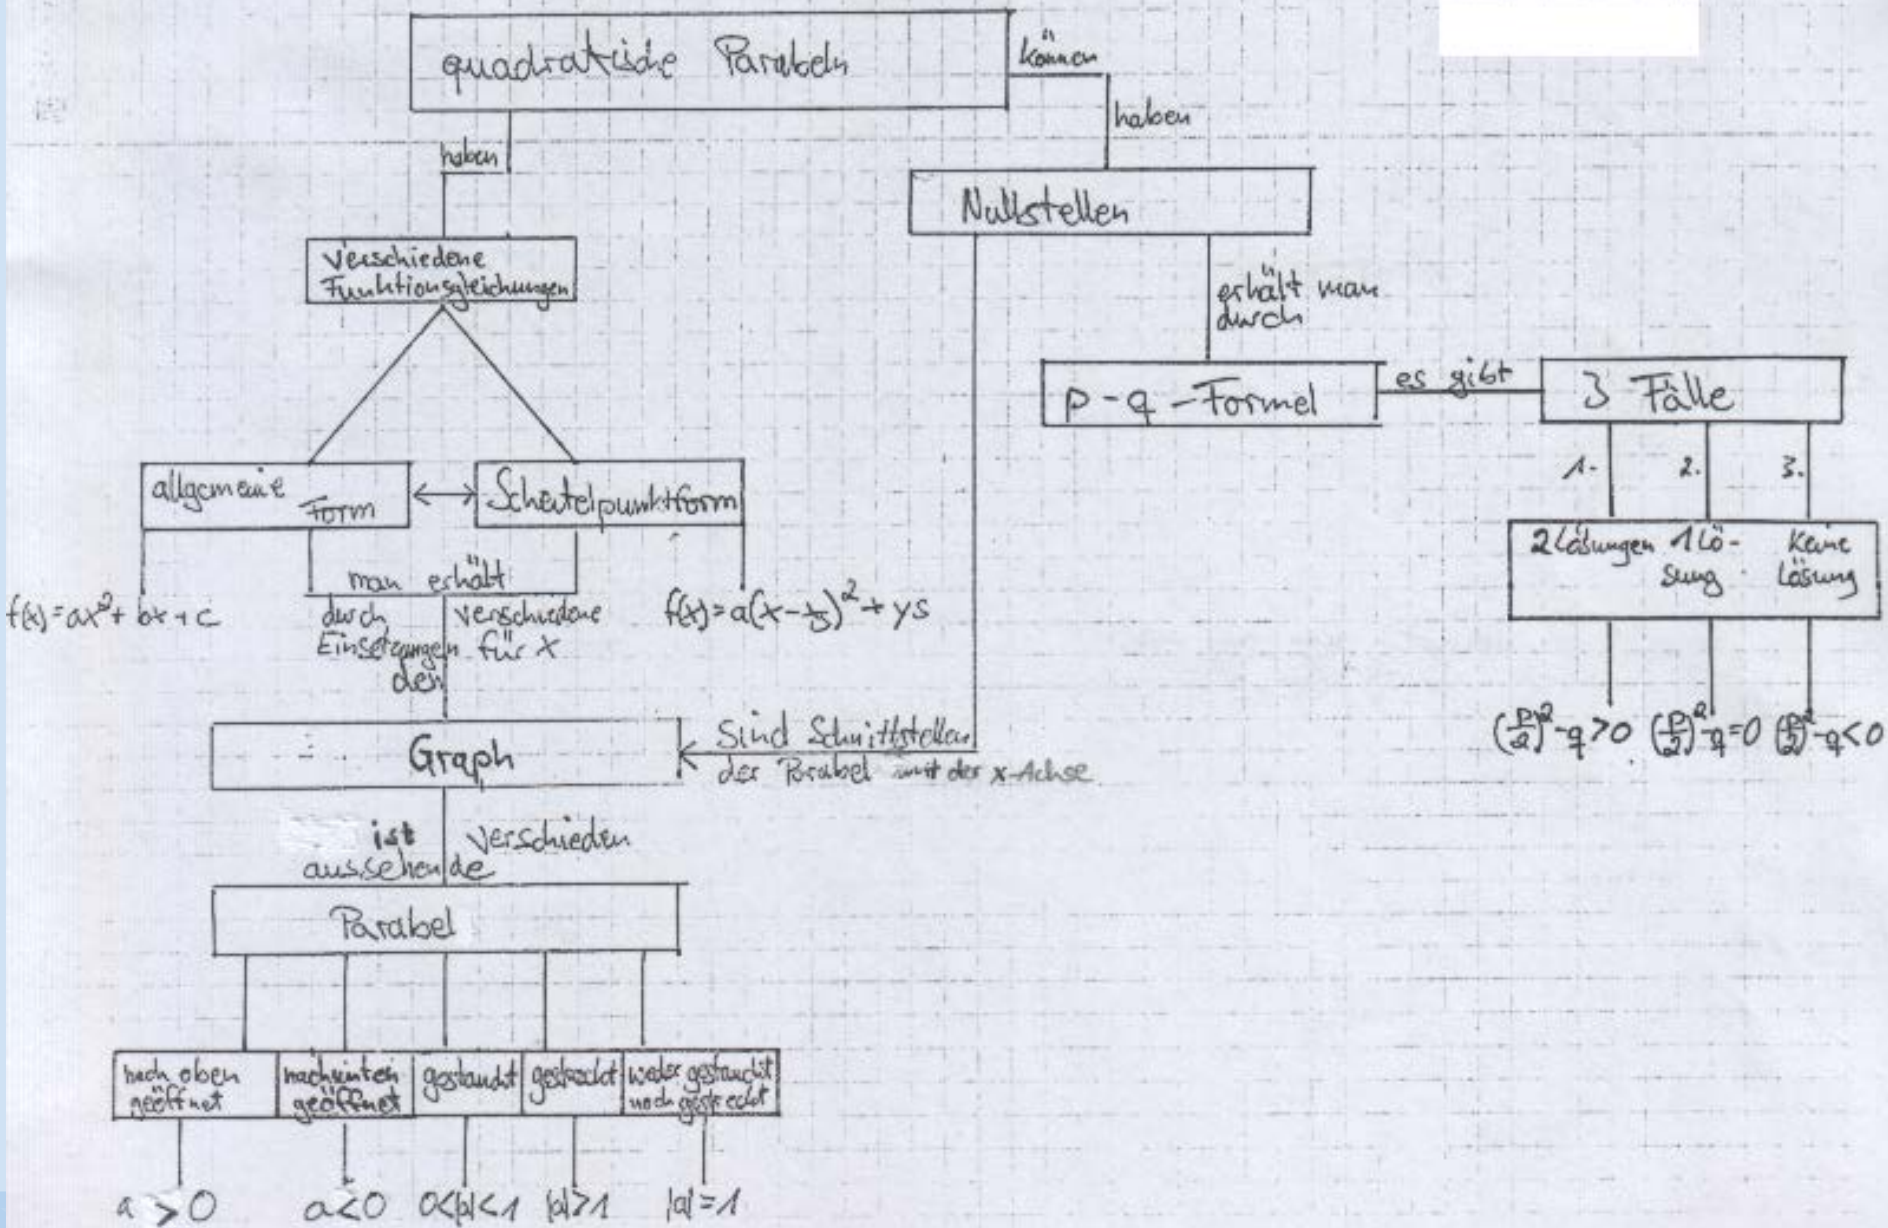 quadratische Parabeln
können
haben
haben
Nullstellen
verschiedene
Funktionsgleichungen
erhält man
durch
p-q-Formel
es gibt
3 Fälle
1. 2. 3.
allgemeine
Form
Scheitelpunktform
2 Lösungen 1 Lö- keine
sung Lösung
man erhält
f(x)=ax²+bx+c
durch verschiedene
Einsetzungen für x
den
f(x)=a(x-xs)²+ys
(p/2)²-q>0 (p/2)²-q=0 (p/2)²-q<0
Graph
sind Schnittstellen
der Parabel mit der x-Achse
ist verschieden
aussehende
Parabel
nach oben
geöffnet
nach unten
geöffnet
gestaucht
gestreckt
weder gestaucht
noch gestreckt
a > 0
a<0
0<|a|<1
|a|>1
|a|=1